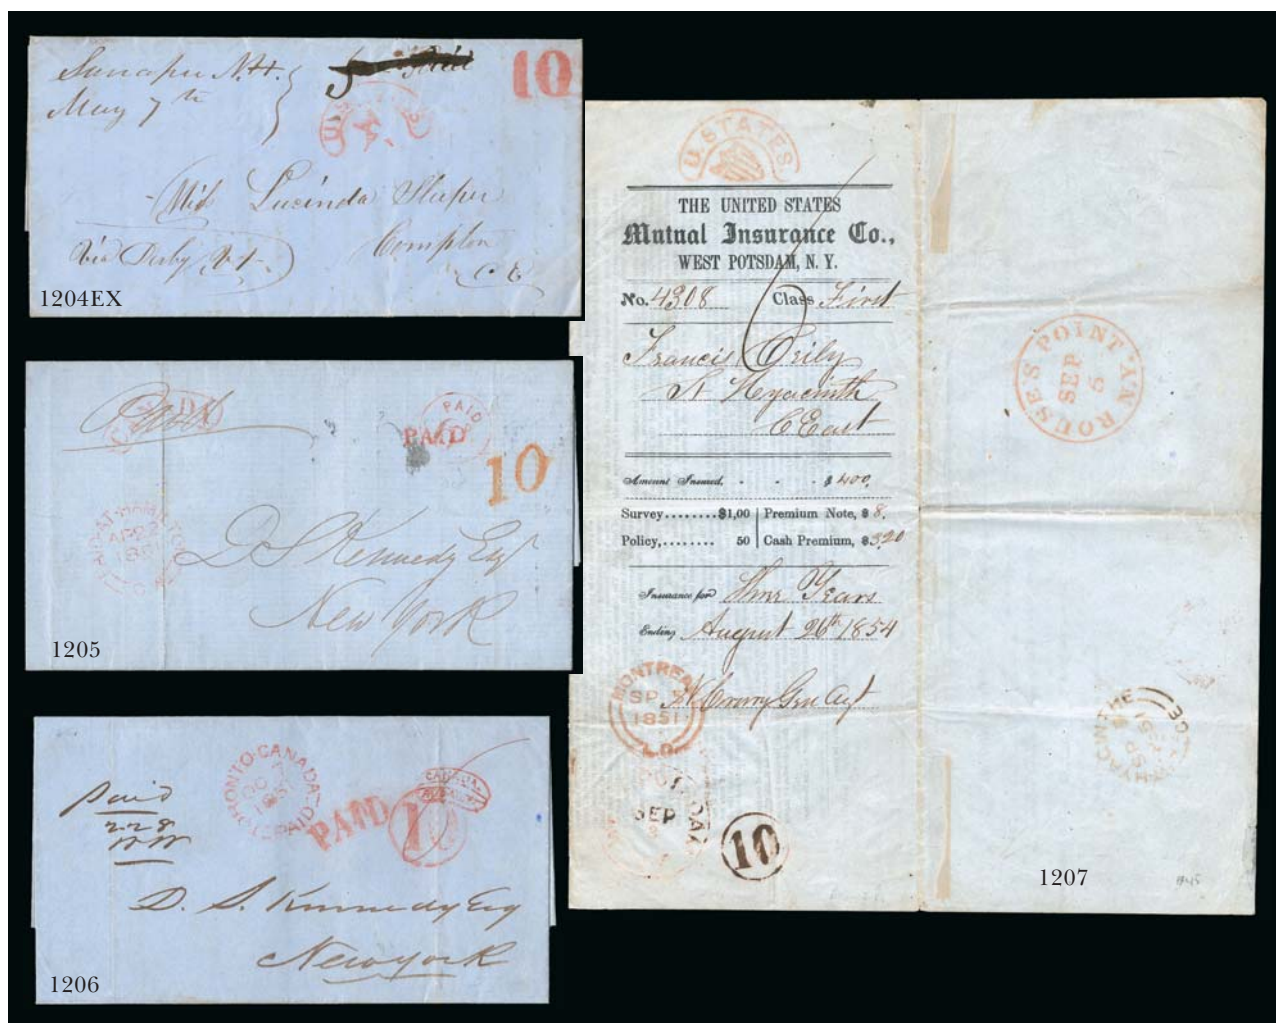 Sunapee N.H.
May 7th
5 Paid
10
Miss Lucinda Sleeper
Compton
C. E.
Via Derby V.t.
1204EX
Paid
CANADA
PAID
PAID
10
HAMILTON
AP 22
D S Kennedy Esq
New York
1205
TORONTO·CANADA
OC
185
PAID
Paid
228
PAID
10
CANADA
D. S. Kennedy Esq
New York
1206
U. STATES
THE UNITED STATES
Mutual Insurance Co.,
WEST POTSDAM, N. Y.
No. 4308 Class First
6
Francis Orily
St Hyacinth
C East
Amount Insured, - - - $ 400.
Survey........$1,00 Premium Note, $ 8.
Policy,........ 50 Cash Premium, $ 3,20
Insurance for Three Years
Ending August 26th 1854
Crary Gen Agt
MONTREAL
SP 5
1851
L.C.
SEP
10
ROUSE'S POINT N.Y.
SEP
5
HYACINTHE
SP
1851
1207
#45